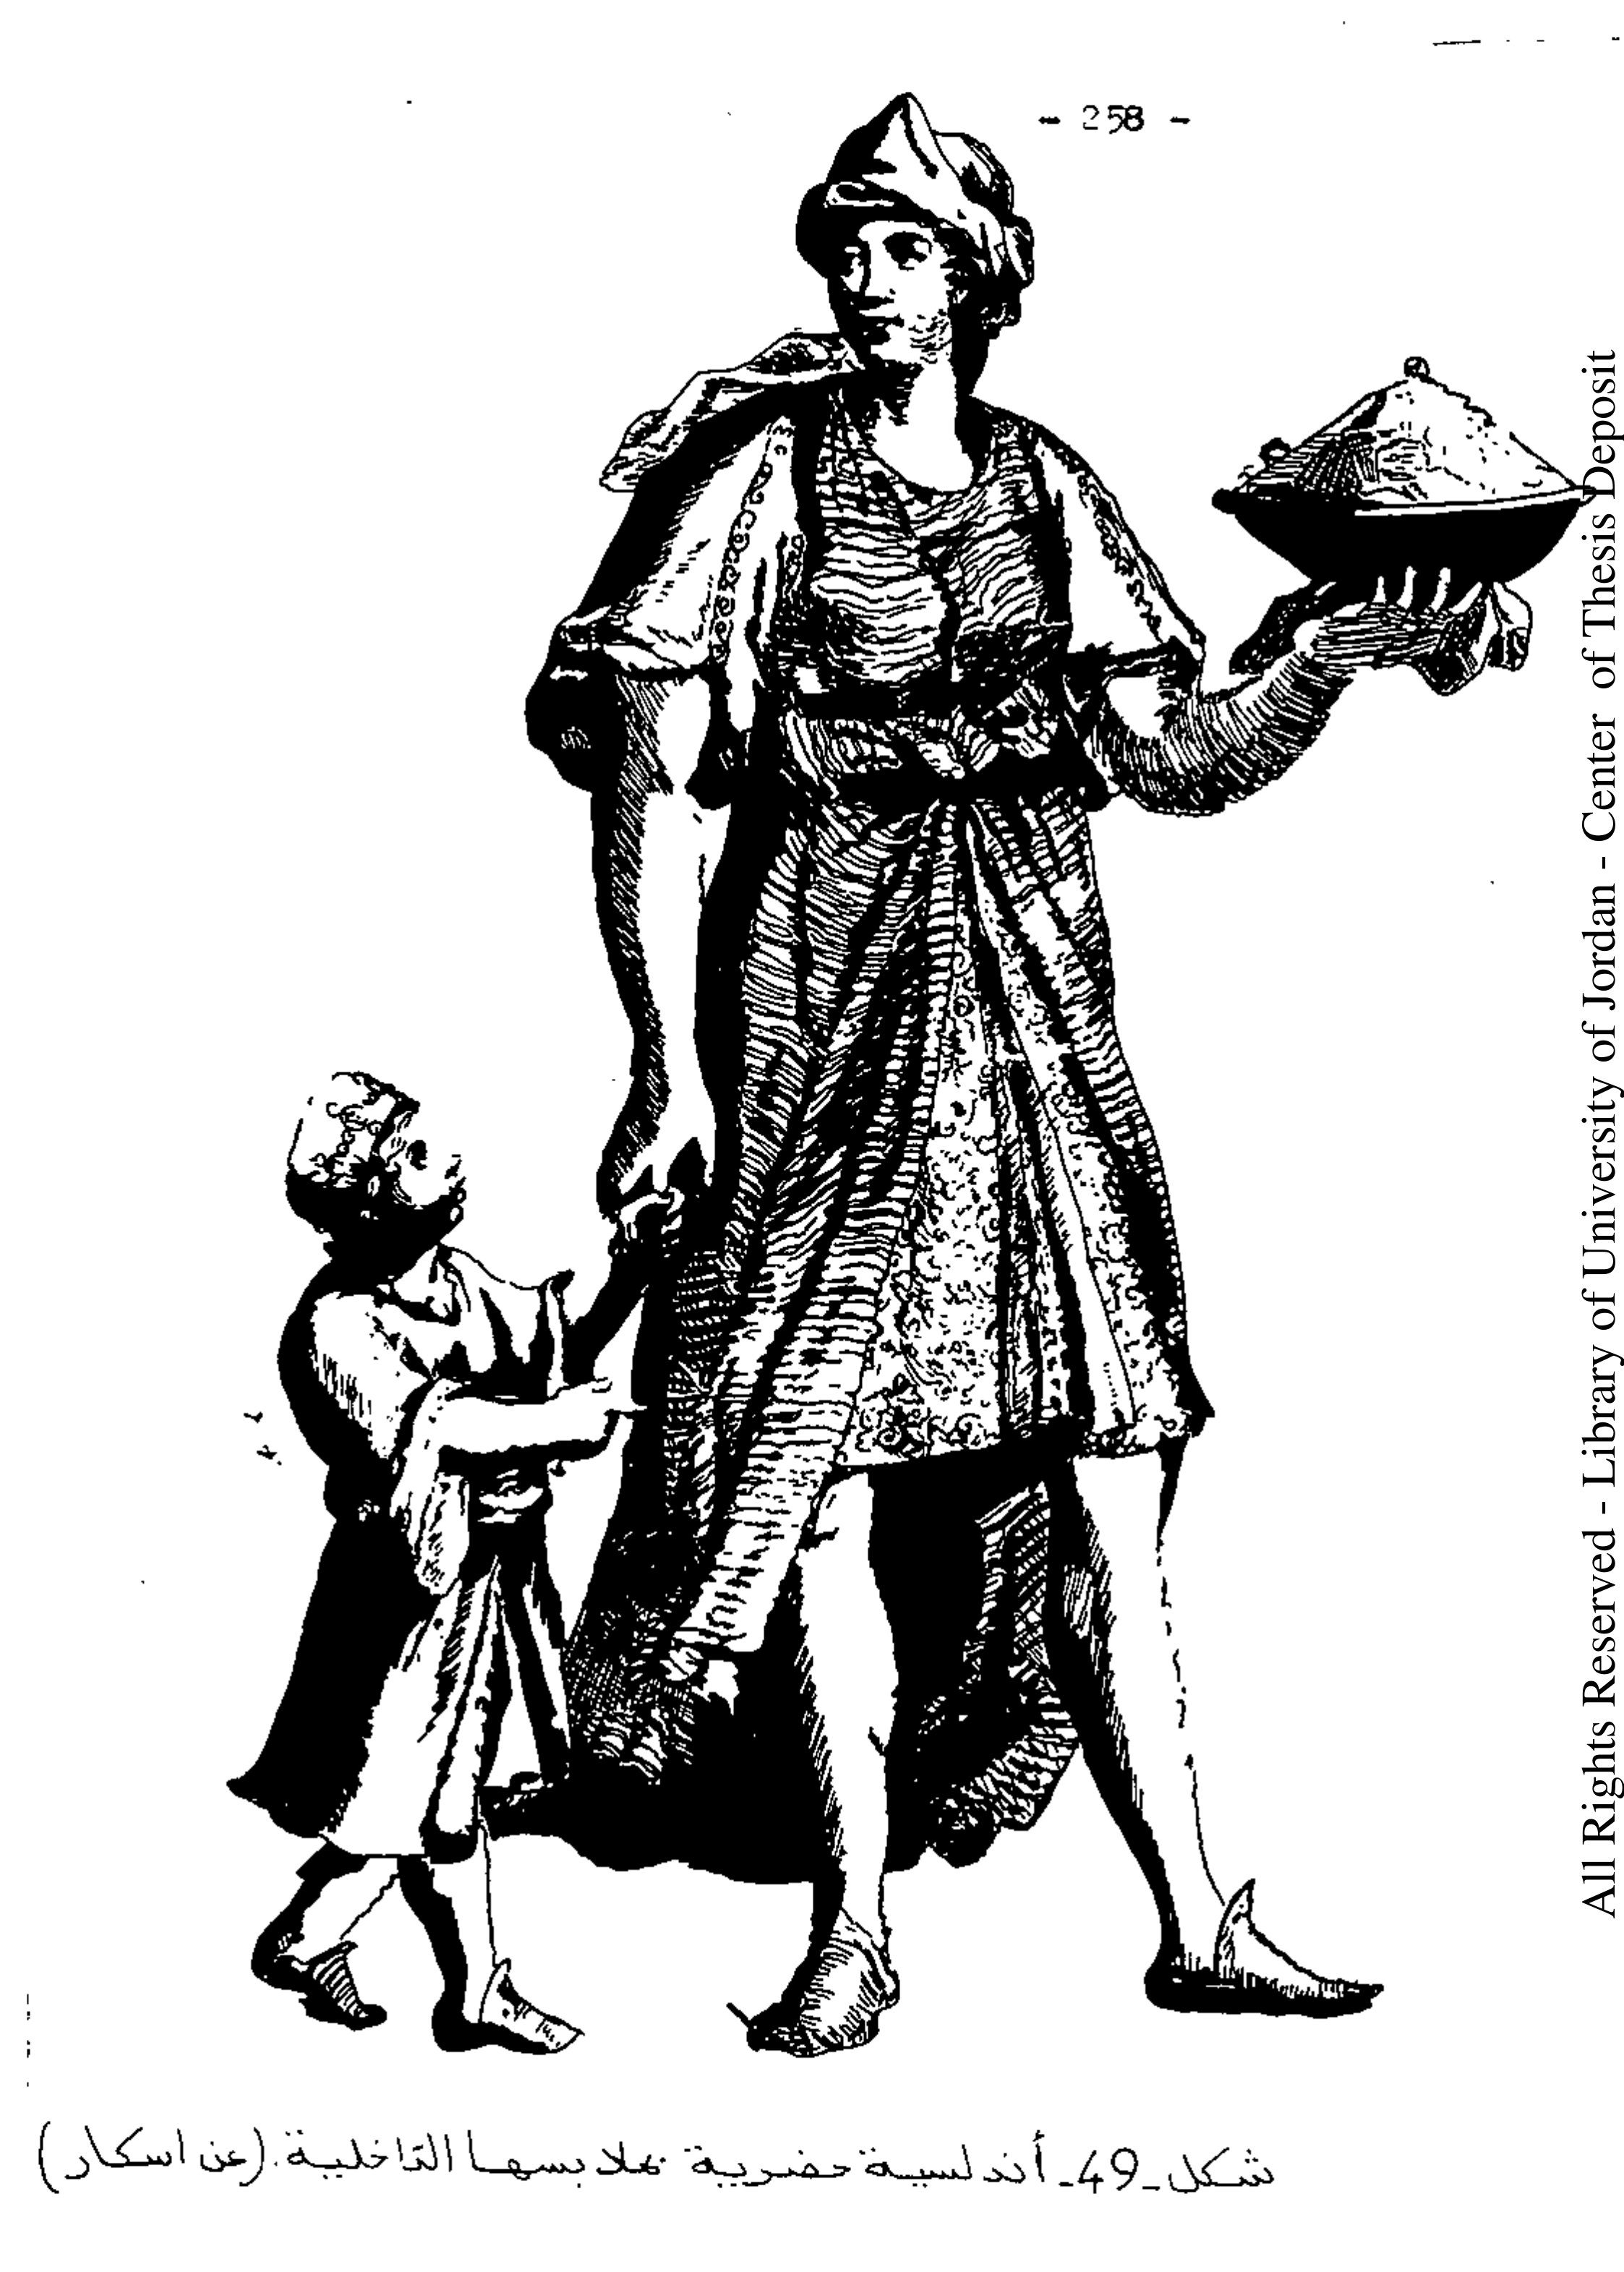 - 258 -
شكل ـ 49 ـ أندلسية حضرية بملابسها الداخلية. (عن اسكار)
All Rights Reserved - Library of University of Jordan - Center of Thesis Deposit